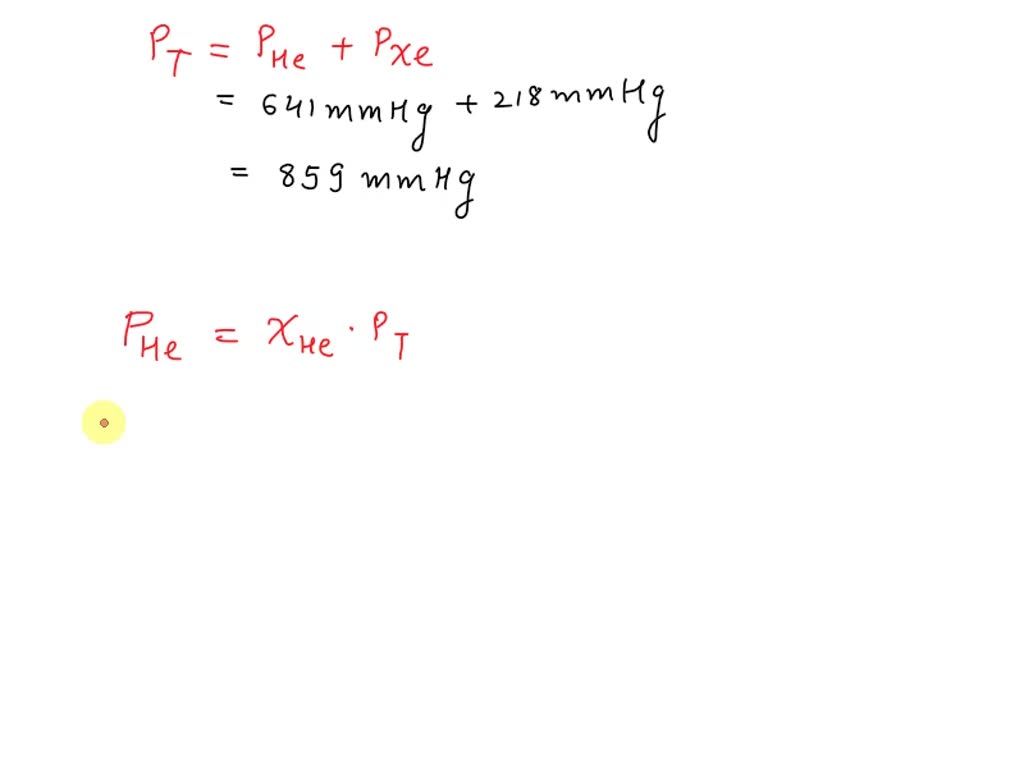 P_T = P_He + P_Xe
= 641 mmHg + 218 mmHg
= 859 mmHg
P_He = X_He · P_T